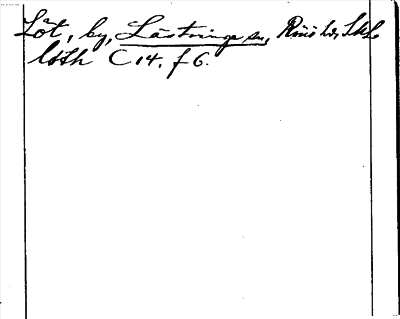 Låt, by, Lästringe sn, Rönö hd, Skl.
Usth C 14. f 6.